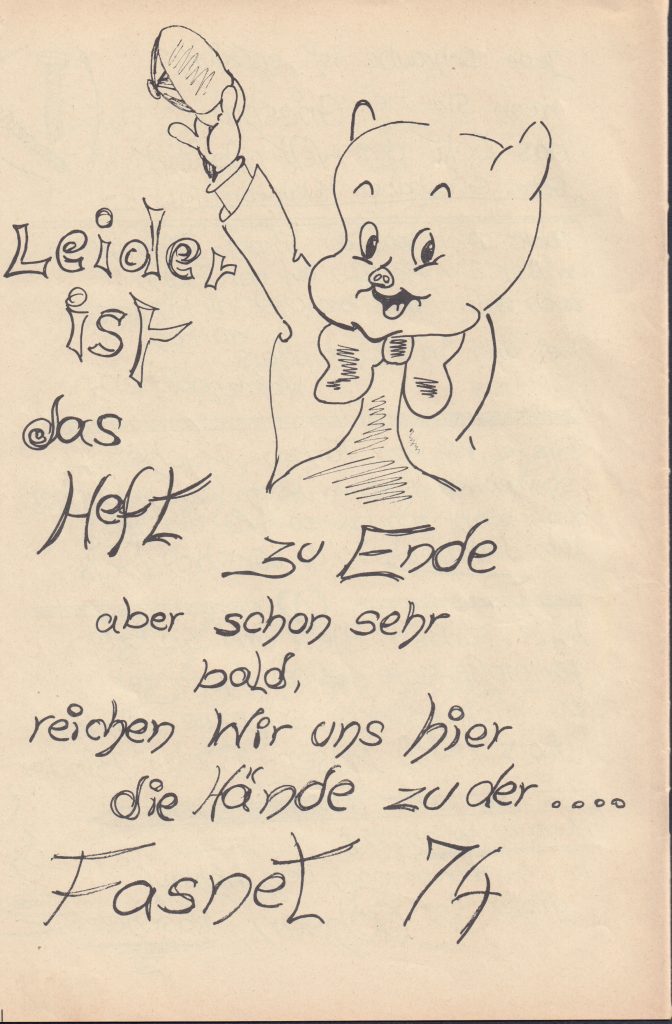 Leider
ist
das
Heft
zu Ende
aber schon sehr
bald,
reichen Wir uns hier
die Hände zu der ....
Fasnet 74